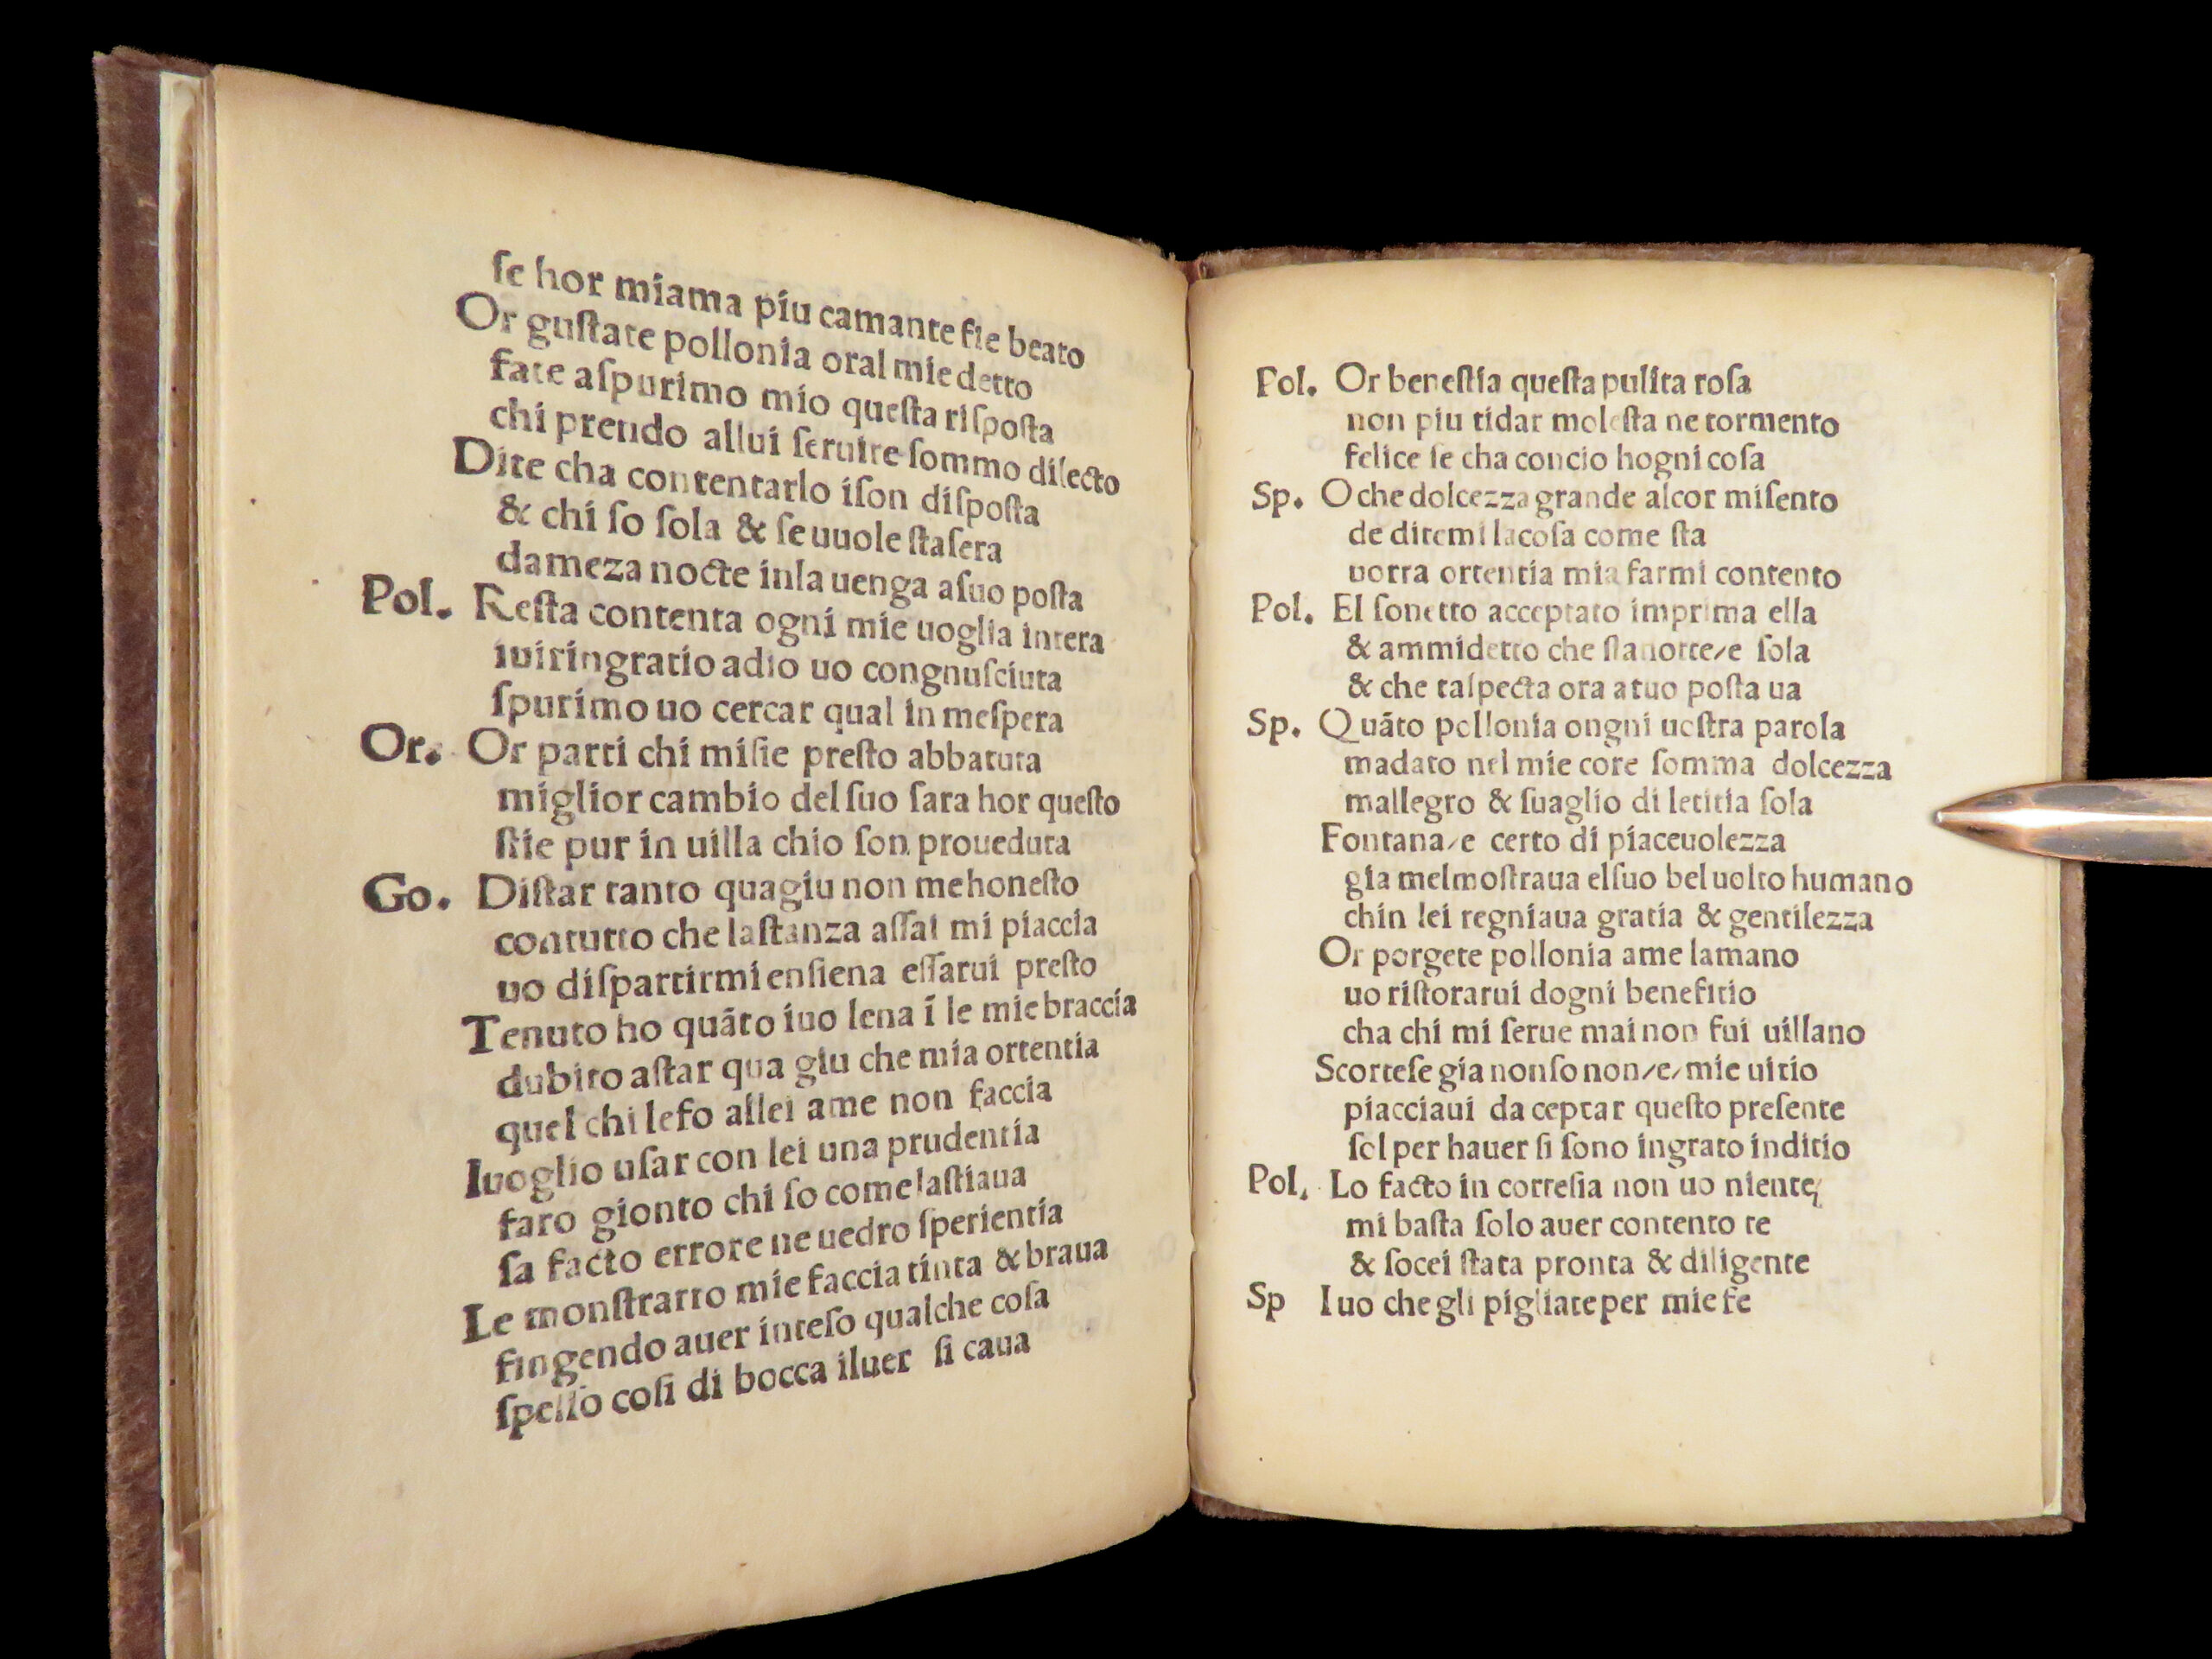 ſe hor miama piu camante fie beato
Or guſtate pollonia oral mie detto
fate aſpurimo mio queſta riſpoſta
chi prendo allui ſeruire ſommo dilecto
Dite cha contentarlo iſon diſpoſta
& chi ſo ſola & ſe uuole ſtaſera
dameza nocte inla uenga aſuo poſta
Pol. Reſta contenta ogni mie uoglia intera
iuiringratio adio uo congnuſciuta
ſpurimo uo cercar qual in meſpera
Or. Or parti chi miſie preſto abbatuta
miglior cambio del ſuo ſara hor queſto
ſtie pur in uilla chio ſon proueduta
Go. Diſtar tanto quagiu non mehoneſto
contutto che laſtanza aſſai mi piaccia
uo diſpartirmi enſiena eſſarui preſto
Tenuto ho quāto iuo lena ī le mie braccia
dubito aſtar qua giu che mia ortentia
quel chi lefo allei ame non faccia
Iuoglio uſar con lei una prudentia
faro gionto chi ſo come laſtiaua
ſa facto errore ne uedro ſperientia
Le monſtrarro mie faccia tinta & braua
fingendo auer inteſo qualche coſa
ſpeſſo coſi di bocca iluer ſi caua
Pol. Or beneſtia queſta pulita roſa
non piu tidar moleſta ne tormento
felice ſe cha concio hogni coſa
Sp. O che dolcezza grande alcor miſento
de ditemi lacoſa come ſta
uorra ortentia mia farmi contento
Pol. El ſonetto acceptato imprima ella
& ammidetto che ſtanotte/e ſola
& che taſpecta ora atuo poſta ua
Sp. Quāto pollonia ongni ueſtra parola
madato nel mie core ſomma dolcezza
mallegro & ſuaglio di letitia ſola
Fontana/e certo di piaceuolezza
gia melmoſtraua elſuo bel uolto humano
chin lei regniaua gratia & gentilezza
Or porgete pollonia ame lamano
uo riſtorarui dogni benefitio
cha chi mi ſerue mai non fui uillano
Scorteſe gia nonſo non/e/mie uitio
piacciaui da ceptar queſto preſente
ſol per hauer ſi ſono ingrato inditio
Pol. Lo facto in corteſia non uo niente
mi baſta ſolo auer contento te
& ſocei ſtata pronta & diligente
Sp I uo che gli pigliate per mie fe